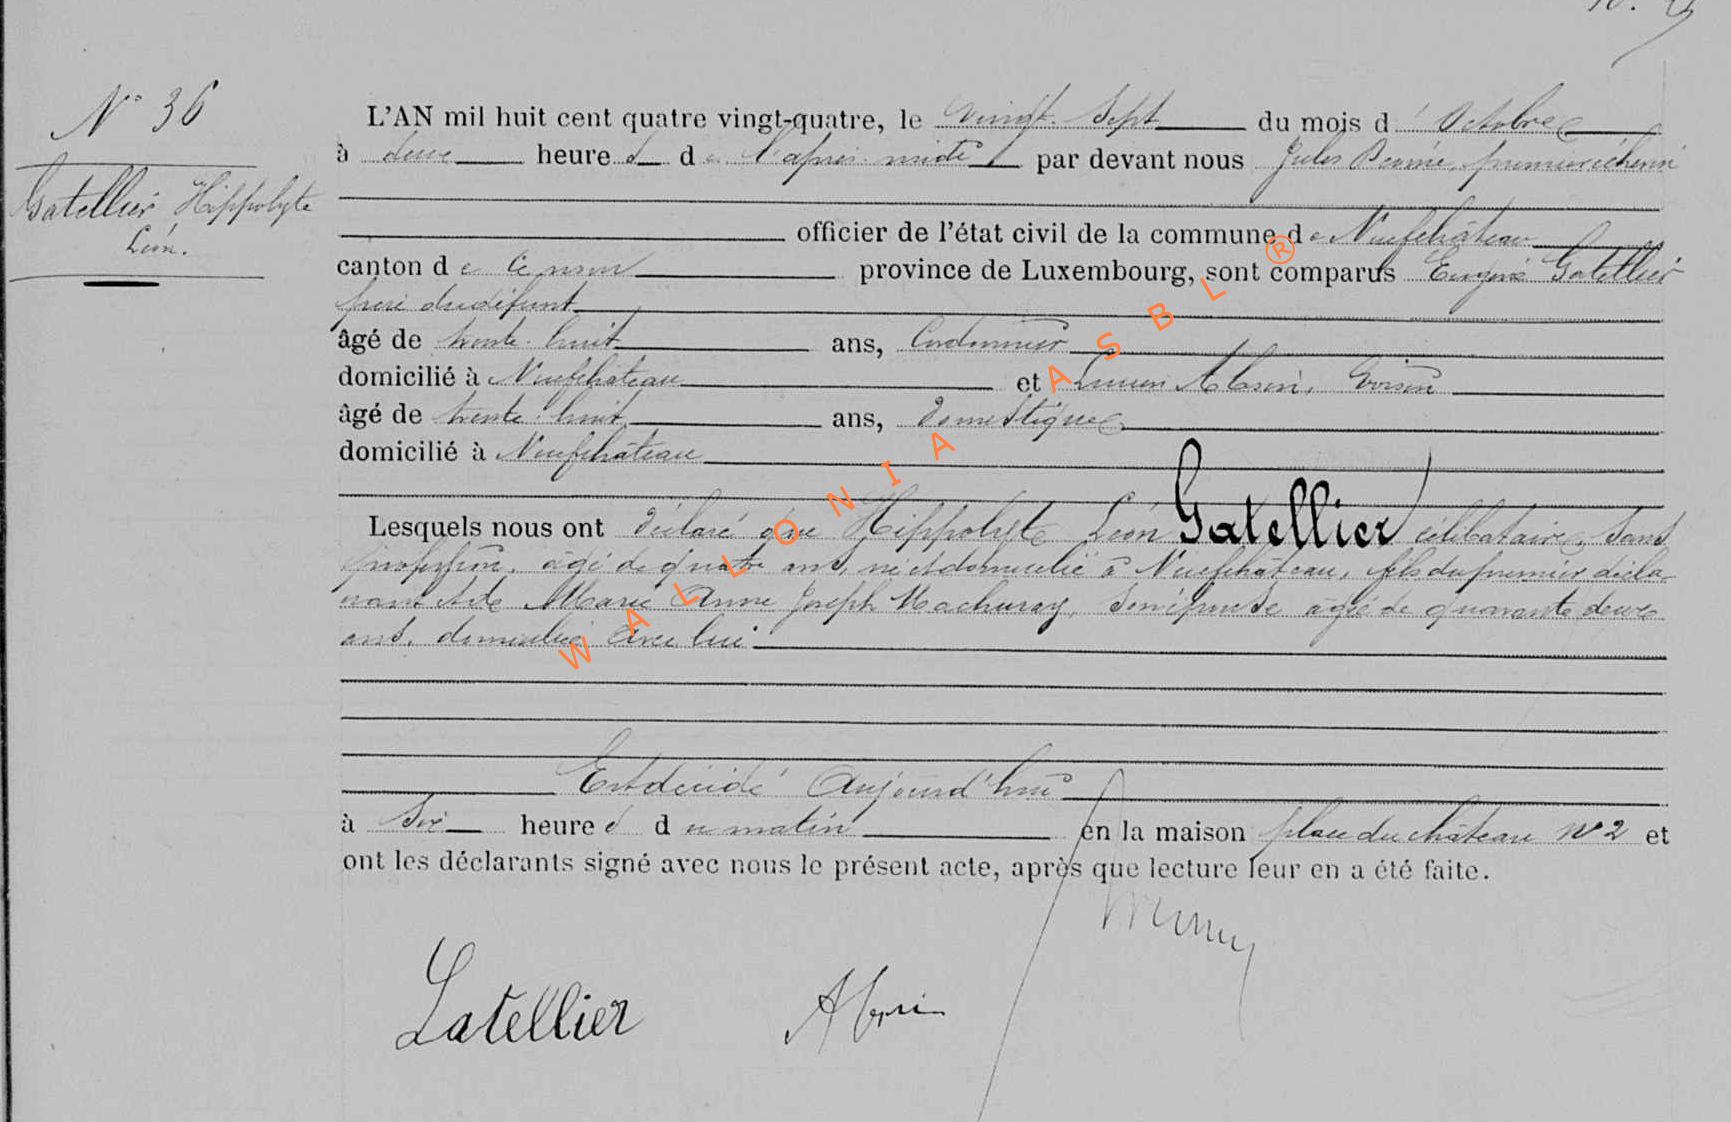 N° 36
Gatellier Hippolyte
Léon.
L'AN mil huit cent quatre vingt-quatre, le vingt-sept du mois d'Octobre
à deux heures de l'après-midi par devant nous Jules premier échevin
officier de l'état civil de la commune de Neufchâteau
canton de ce nom province de Luxembourg, sont comparus Eugène Gatellier
père du défunt
âgé de trente-huit ans, Cordonnier
domicilié à Neufchâteau et Lucien voisin
âgé de trente-huit ans, domestique
domicilié à Neufchâteau
Lesquels nous ont déclaré que Hippolyte Léon Gatellier célibataire, sans
profession, âgé de quatre ans, né et domicilié à Neufchâteau, fils du premier décla-
rant et de Marie Anne Joseph son épouse âgée de quarante deux
ans, domiciliée avec lui
Est décédé Aujourd'hui
à six heures du matin en la maison place du château N° 2 et
ont les déclarants signé avec nous le présent acte, après que lecture leur en a été faite.
Gatellier
WALLONIA ASBL ®